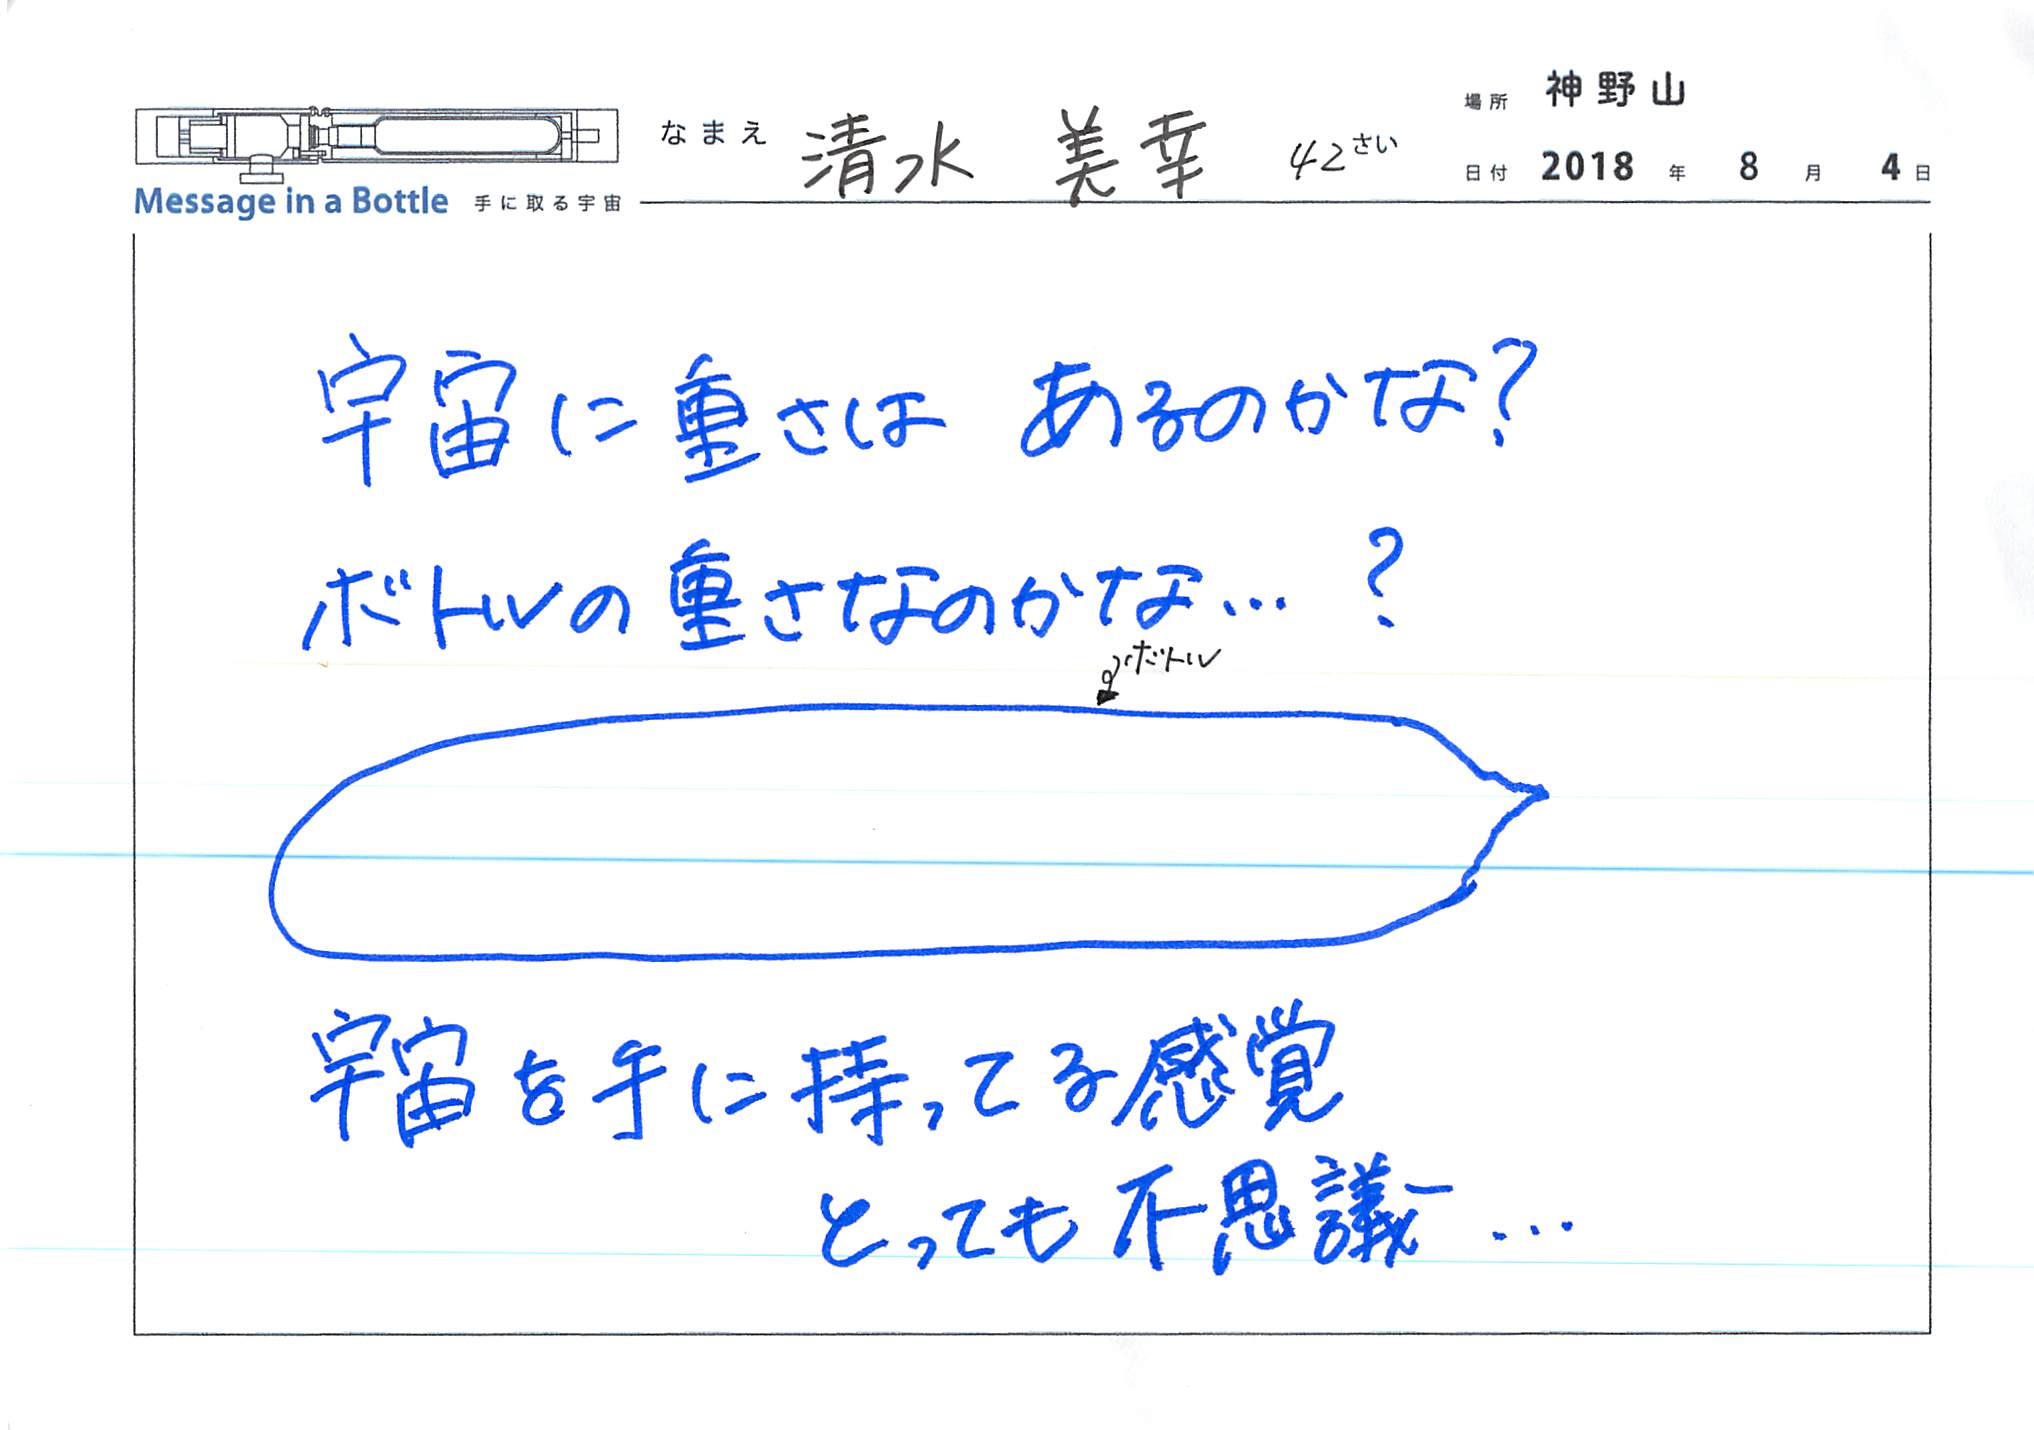 場所 神野山
なまえ 清水 美幸 42さい
日付 2018年 8月 4日
Message in a Bottle 手に取る宇宙
宇宙に重さは あるのかな?
ボトルの重さなのかな…?
ボトル
宇宙を手に持ってる感覚
とっても不思議ー…